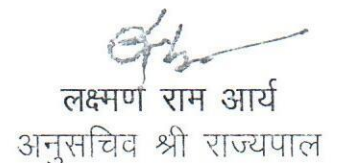 लक्ष्मण राम आर्य
अनुसचिव श्री राज्यपाल